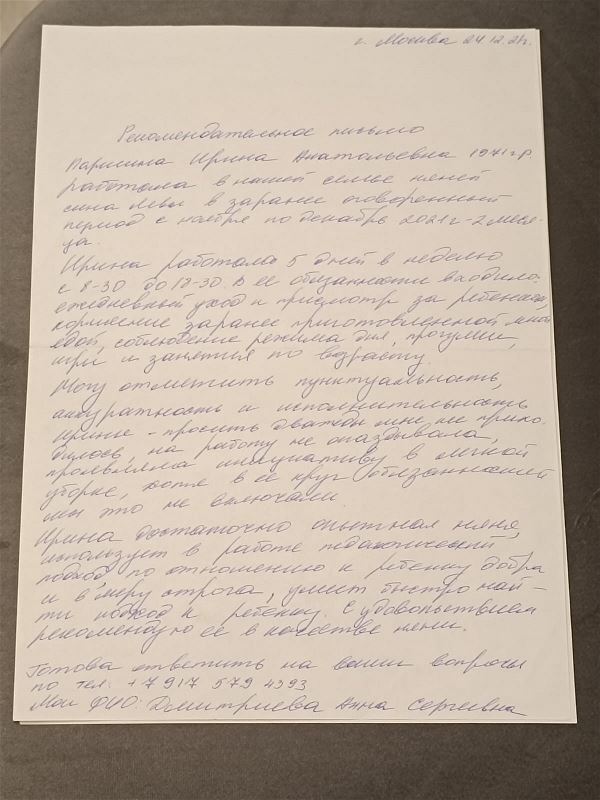 г. Москва 24.12.21г.
Рекомендательное письмо
Ларишина Ирина Анатольевна 1971 г.р.
работала в нашей семье няней
сына Левы в заранее оговоренный
период с ноября по декабрь 2021г - 2 меся-
ца.
Ирина работала 5 дней в неделю
с 8-30 до 18-30. В ее обязанности входило:
ежедневный уход и присмотр за ребенком,
кормление заранее приготовленной мной
едой, соблюдение режима дня, прогулки,
игры и занятия по возрасту.
Могу отметить пунктуальность,
аккуратность и исполнительность
Ирины - просить дважды мне не прихо-
дилось, на работу не опаздывала,
проявляла инициативу в легкой
уборке, хотя в ее круг обязанностей
мы это не включали
Ирина достаточно опытная няня,
использует в работе педагогический
подход, по отношению к ребенку добра
и в меру строга, умеет быстро най-
ти подход к ребенку. С удовольствием
рекомендую ее в качестве няни.
Готова ответить на ваши вопросы
по тел. +7 917 579 4393
Мои ФИО: Дмитриева Анна Сергеевна